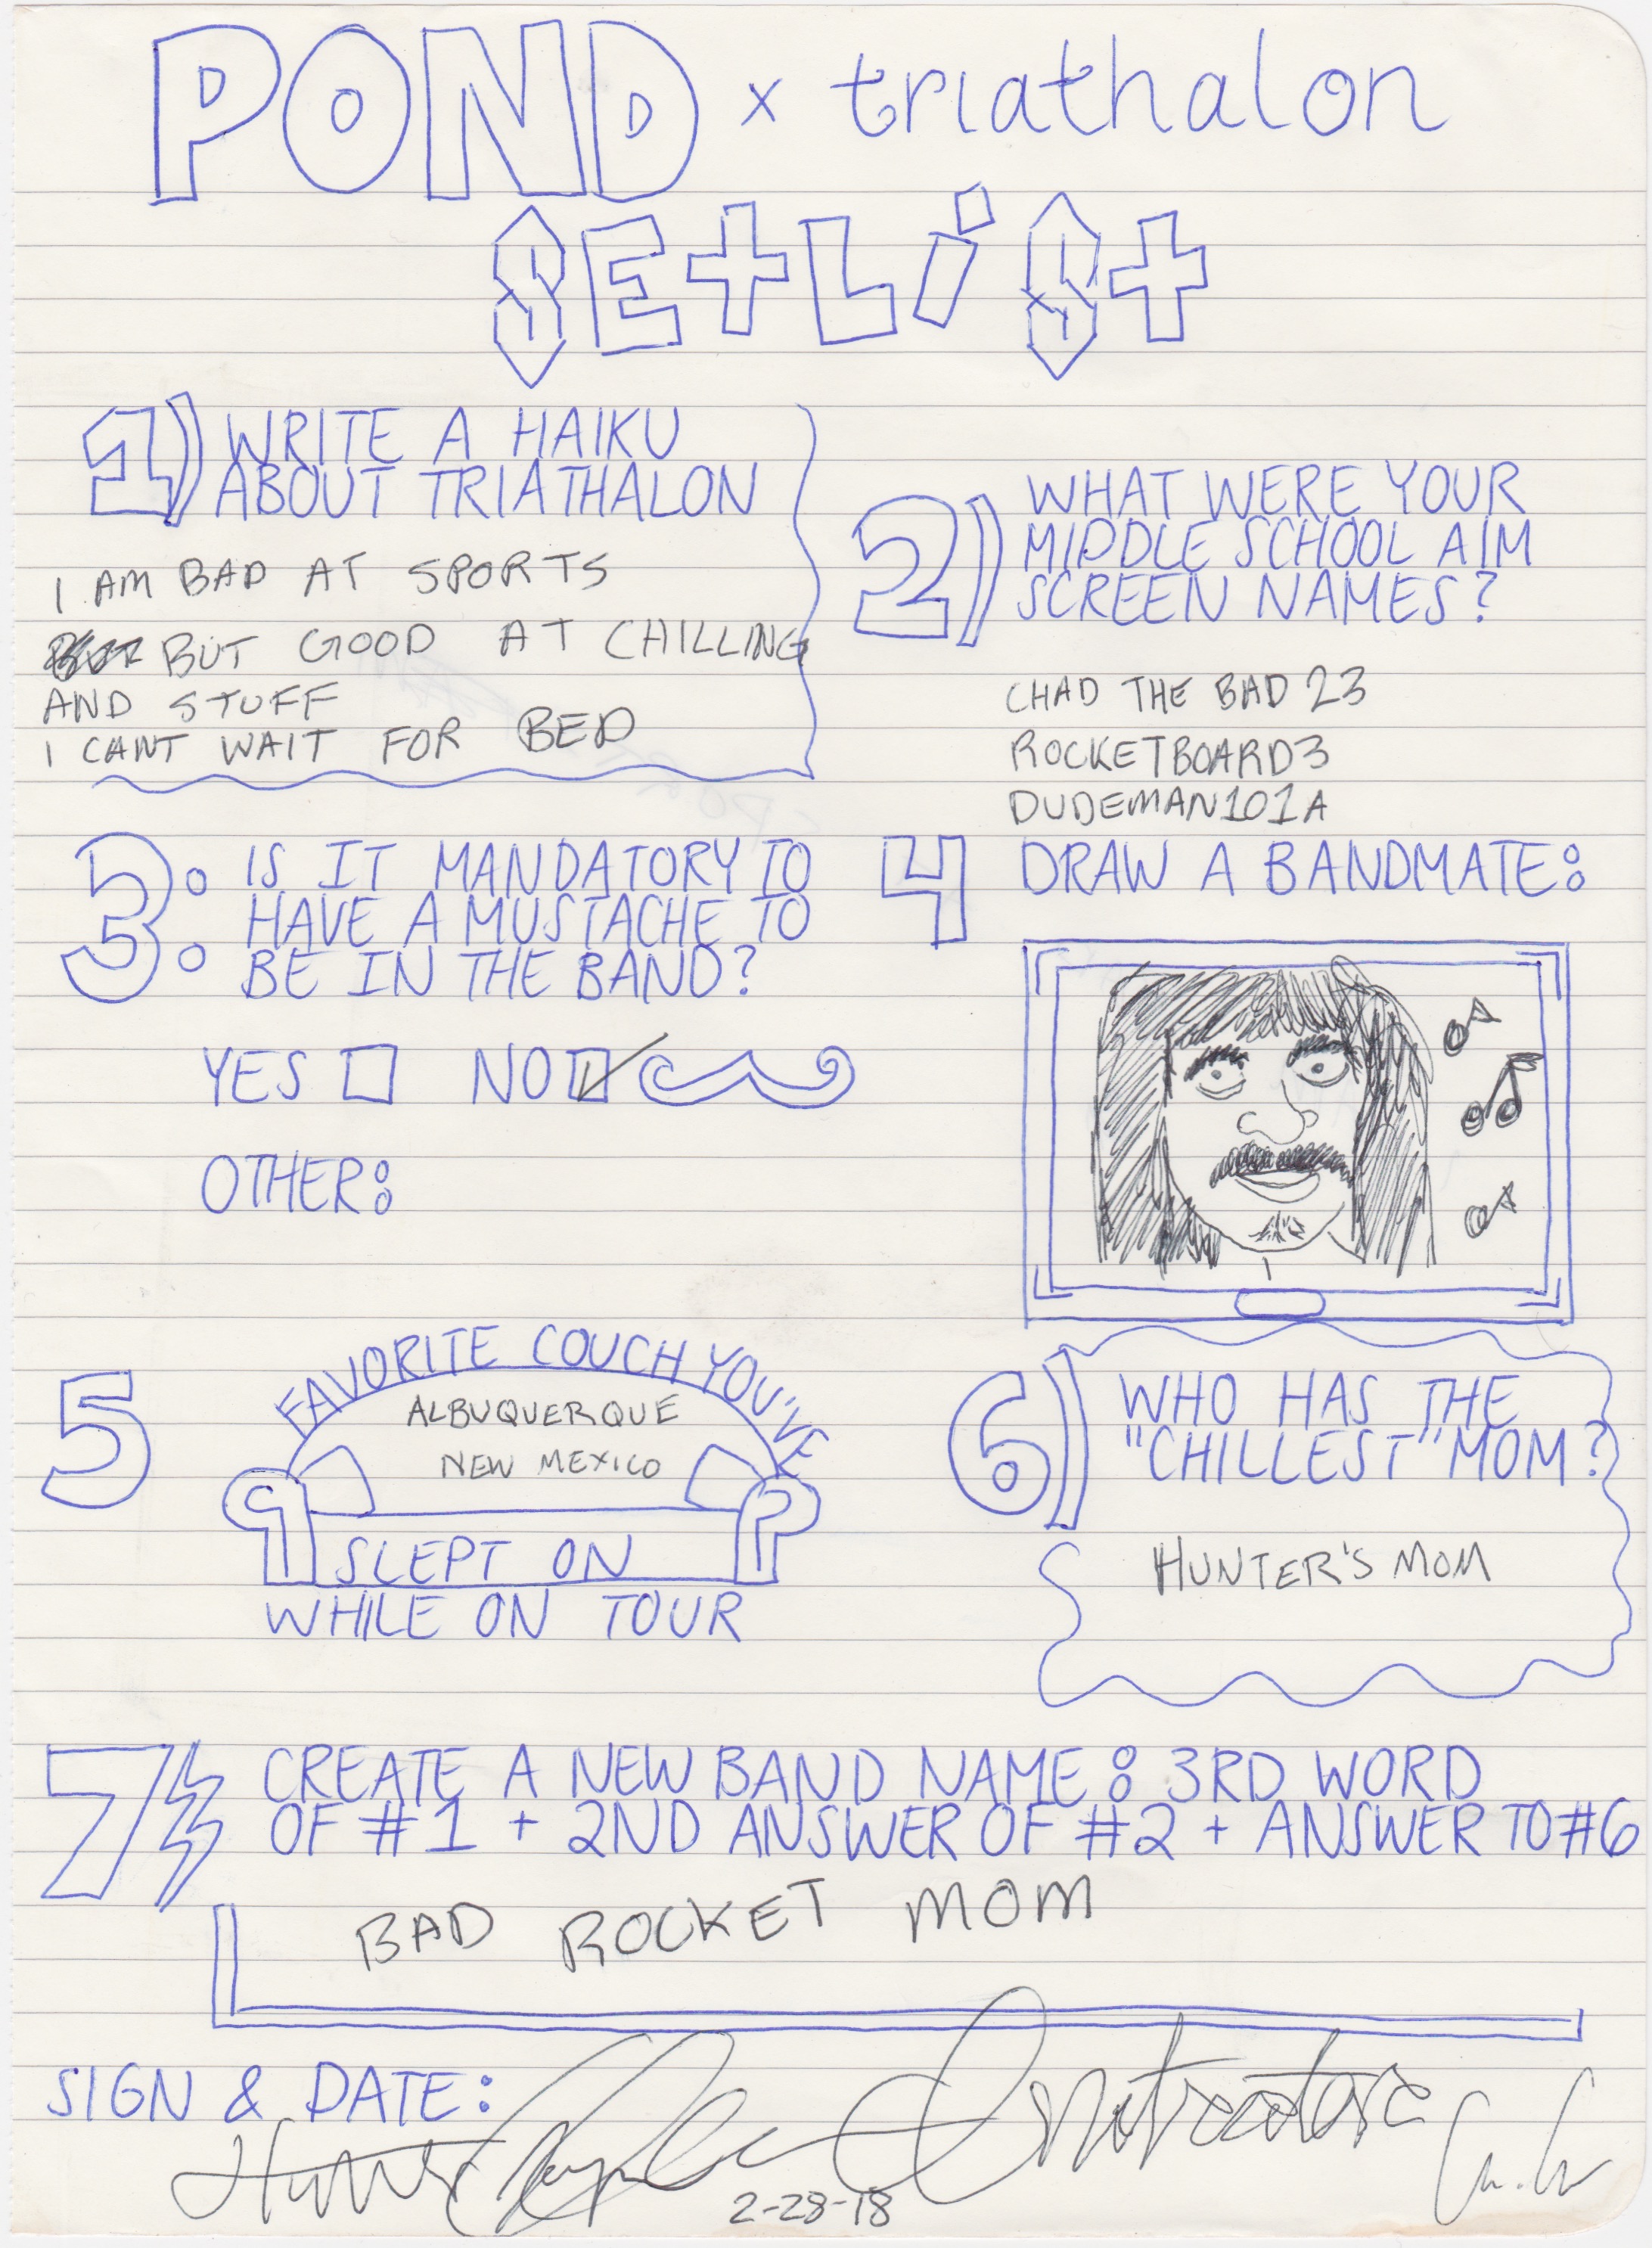 POND x triathalon
SEtLiSt
1) WRITE A HAIKU
ABOUT TRIATHALON
I AM BAD AT SPORTS
BUT GOOD AT CHILLING
AND STUFF
I CANT WAIT FOR BED
2) WHAT WERE YOUR
MIDDLE SCHOOL AIM
SCREEN NAMES?
CHAD THE BAD 23
ROCKETBOARD3
DUDEMAN101A
3: IS IT MANDATORY TO
HAVE A MUSTACHE TO
BE IN THE BAND?
YES NO
OTHER:
4 DRAW A BANDMATE:
5 FAVORITE COUCH YOU'VE
ALBUQUERQUE
NEW MEXICO
SLEPT ON
WHILE ON TOUR
6) WHO HAS THE
"CHILLEST" MOM?
HUNTER'S MOM
7 CREATE A NEW BAND NAME: 3RD WORD
OF #1 + 2ND ANSWER OF #2 + ANSWER TO #6
BAD ROCKET MOM
SIGN & DATE:
2-28-18